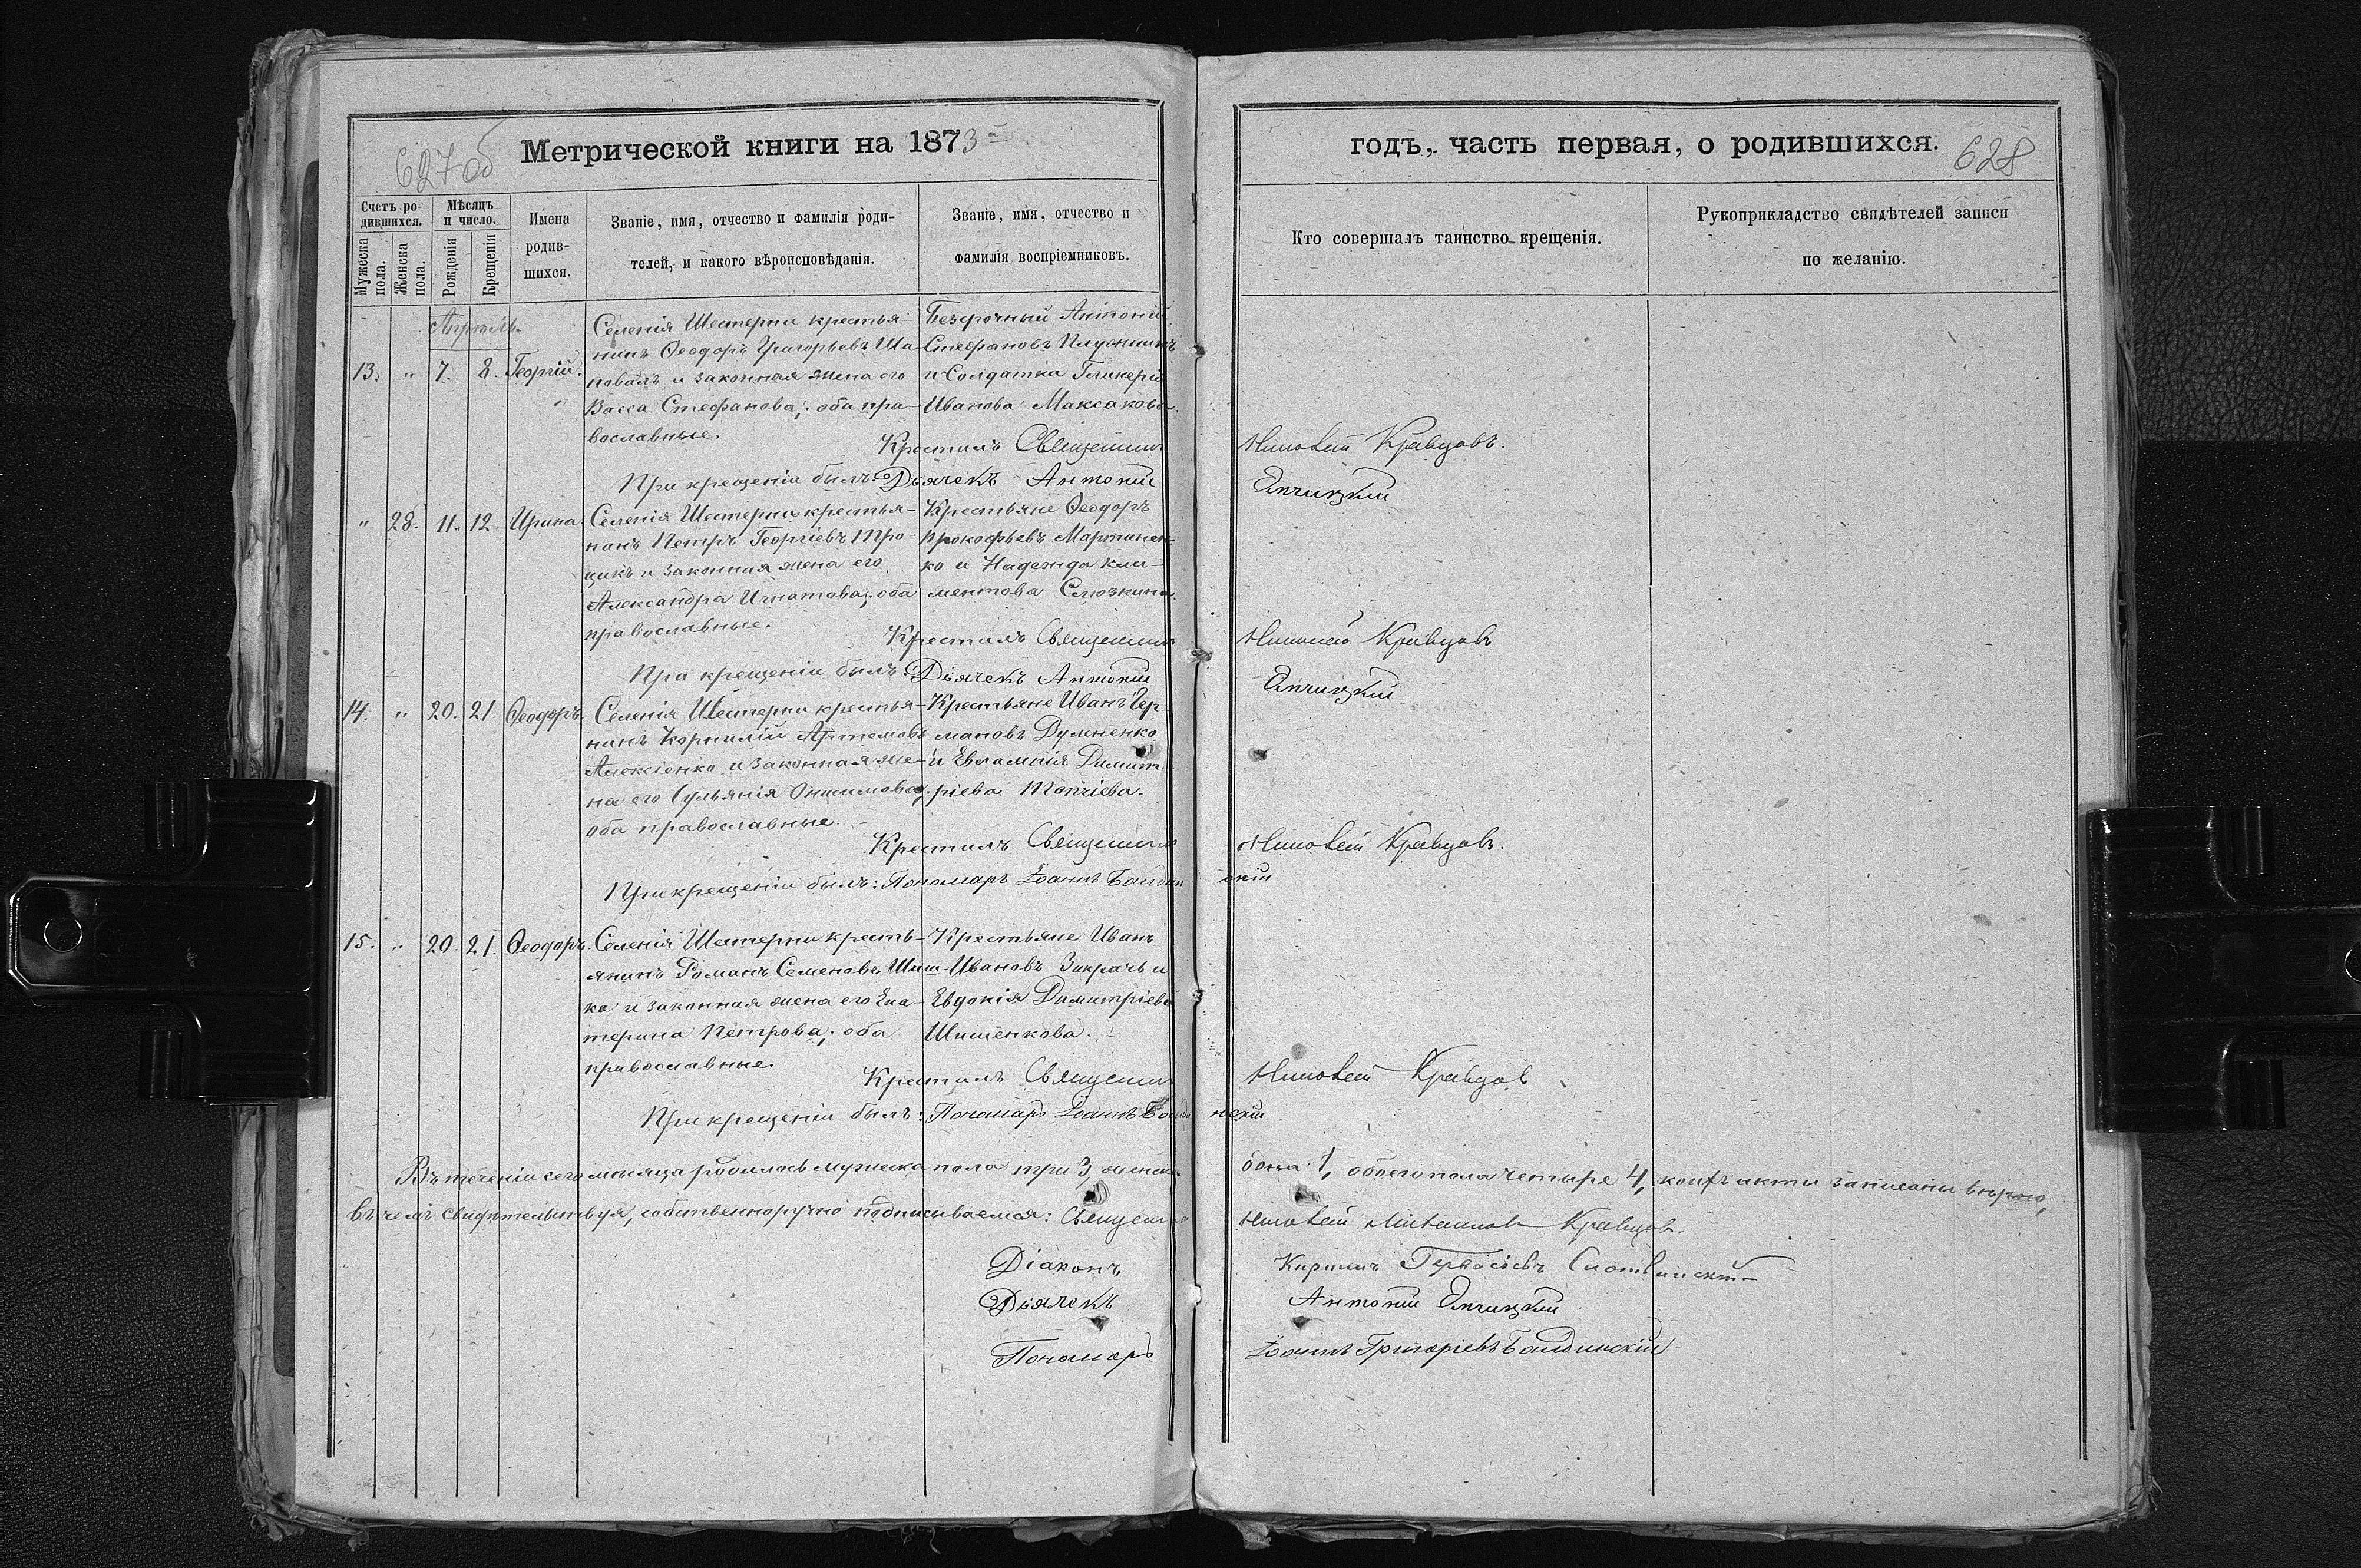 627 об
Метрической книги на 1873 й
годъ, часть первая, о родившихся.
628
Счетъ родившихся.
Мужеска пола.
Женска пола.
Мѣсяцъ и число.
Рожденія
Крещенія
Имена родившихся.
Званіе, имя, отчество и фамилія роди-
телей, и какого вѣроисповѣданія.
Званіе, имя, отчество и
фамилія воспріемниковъ.
Кто совершалъ таинство крещенія.
Рукоприкладство свидѣтелей записи
по желанію.
Апрѣль
13. " 7. 8. Георгій.
Селенія Шестерни крестья-
нинъ Ѳеодоръ Григорьевъ Ша-
повалъ и законная жена его
Васса Стефанова; оба пра-
вославные.
Безсрочный Антоній
Стефановъ
и Солдатка Гликерія
Иванова Максакова.
Крестилъ Священникъ Кравцовъ.
При крещеніи былъ: Дьячекъ Антоній
" 28. 11. 12. Ирина
Селенія Шестерни крестья-
нинъ Петръ Георгіевъ Про-
цикъ и законная жена его
Александра Игнатова; оба
православные.
Крестьяне Ѳеодоръ
Прокофьевъ Мартинен-
ко и Надежда Кли-
ментова Слюзкина.
Крестилъ Священникъ Кравцовъ
При крещеніи былъ: Дьячекъ Антоній
14. " 20. 21. Ѳеодоръ.
Селенія Шестерни крестья-
нинъ Корнилій Артемовъ
Алексіенко и законная же-
на его Іульянія Онисимова;
оба православные.
Крестьяне Иванъ Гер-
мановъ
и Евлампія Димит-
ріева Топчіева.
Крестилъ Священникъ Кравцовъ.
При крещеніи былъ: Пономарь Іоаннъ Балдинскій
15. " 20. 21. Ѳеодоръ.
Селенія Шестерни кресть-
янинъ Романъ Семеновъ Шиш-
ка и законная жена его Ека-
терина Петрова; оба
православные.
Крестьяне Иванъ
Ивановъ Закрачь и
Евдокія Димитріева
Шишенкова.
Крестилъ Священникъ Кравцовъ
При крещеніи былъ: Пономарь Іоаннъ Балдинскій
Въ теченіи сего мѣсяца родилось мужеска пола три 3, женска 1, обоего пола четыре 4, записаны вѣрно,
въ чемъ свидѣтельствуя, собственноручно подписываемся: Священникъ Кравцовъ.
Діаконъ Кирилъ Гервасіевъ
Дьячекъ Антоній
Пономарь Іоаннъ Григоріевъ Балдинскій